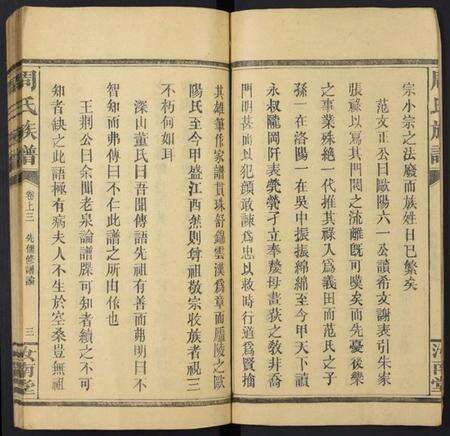 宗小宗之法廢而族姓日已繁矣
范文正公曰歐陽六一公讀希文謝表引朱家
張祿以寫其門閥之流離既可嘆矣而先憂後樂
之事業殊絕一代推其祿入為義田而范氏之子
孫一在洛陽一在吳中振振綿綿至今甲天下讀
永叔隴岡阡表煢煢孑立奉嫠母畫荻之教幷喬
門明甚而以犯顏敢諫為忠以救時行道為賢搶
其雄筆作家譜貫珠舒錦雲漢為章而廬陵之歐
陽氏至今甲盛江西然則尊祖敬宗收族者視三
不朽何如耳
深山董氏曰吾聞傳語先祖有善而弗明曰不
智知而弗傳曰不仁此譜之所由作也
王荆公曰余聞老泉論譜牒可知者續之不可
知者缺之此語極有病夫人不生於空桑豈無祖
周氏族譜
卷上三
先儒修譜論
三
汝南堂